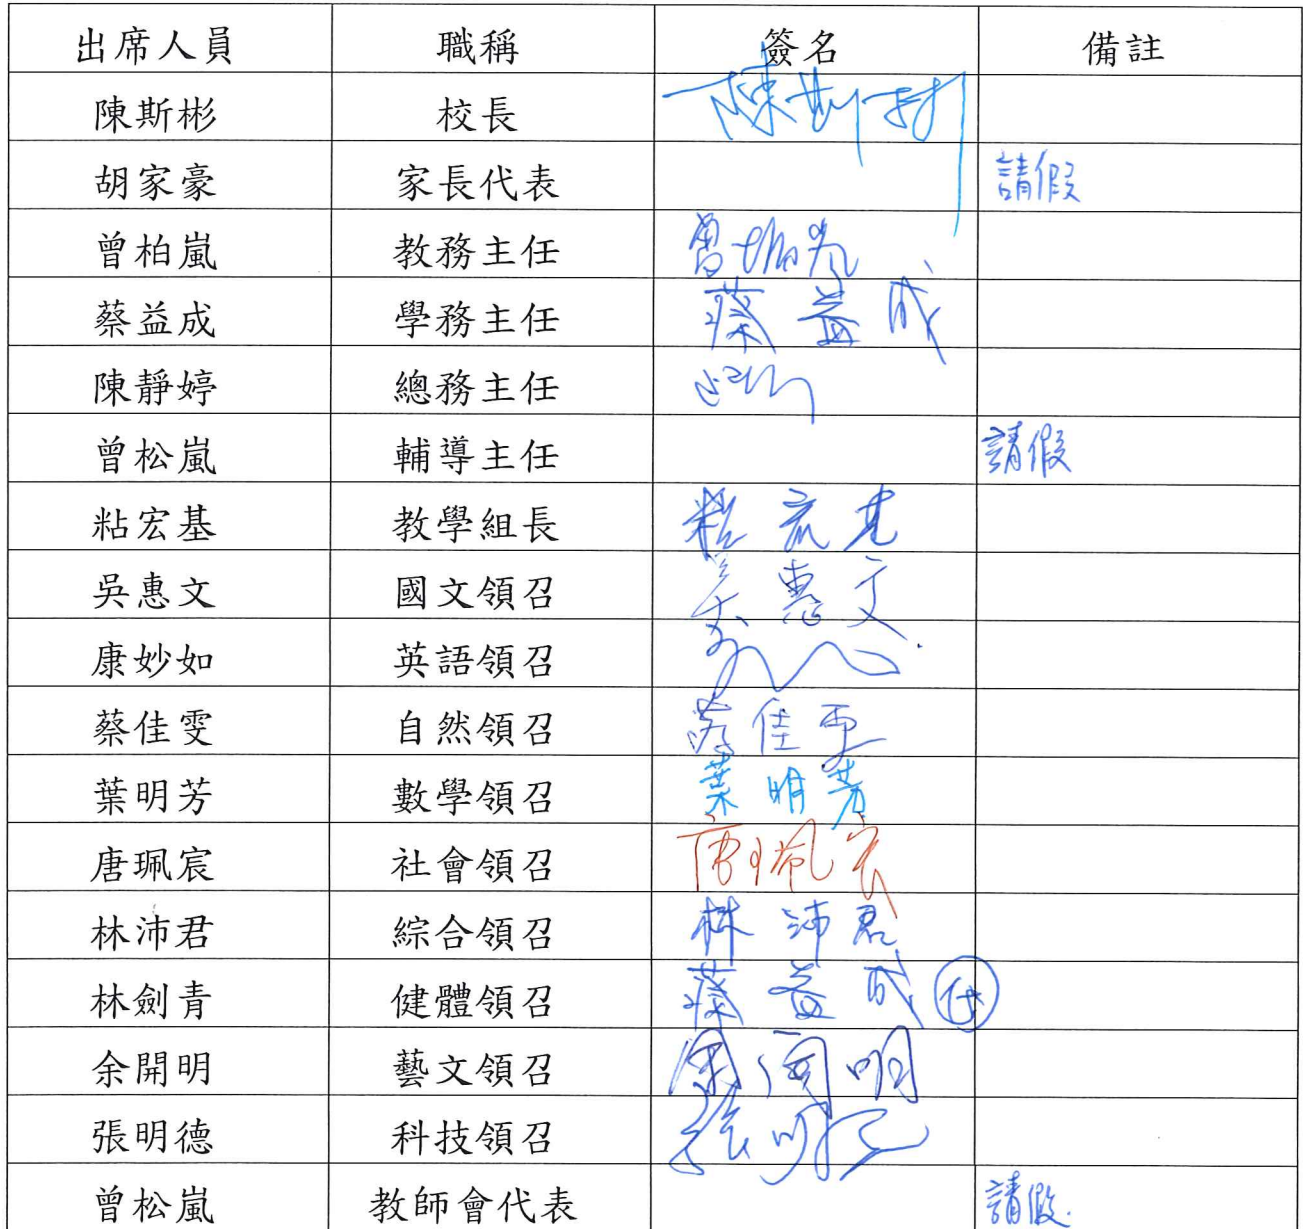 出席人員 職稱 簽名 備註
陳斯彬 校長 陳斯彬
胡家豪 家長代表 請假
曾柏嵐 教務主任 曾柏嵐
蔡益成 學務主任 蔡益成
陳靜婷 總務主任
曾松嵐 輔導主任 請假
粘宏基 教學組長 粘宏基
吳惠文 國文領召 吳惠文
康妙如 英語領召
蔡佳雯 自然領召 蔡佳雯
葉明芳 數學領召 葉明芳
唐珮宸 社會領召 唐珮宸
林沛君 綜合領召 林沛君
林劍青 健體領召 蔡益成 代
余開明 藝文領召 余開明
張明德 科技領召 張明德
曾松嵐 教師會代表 請假